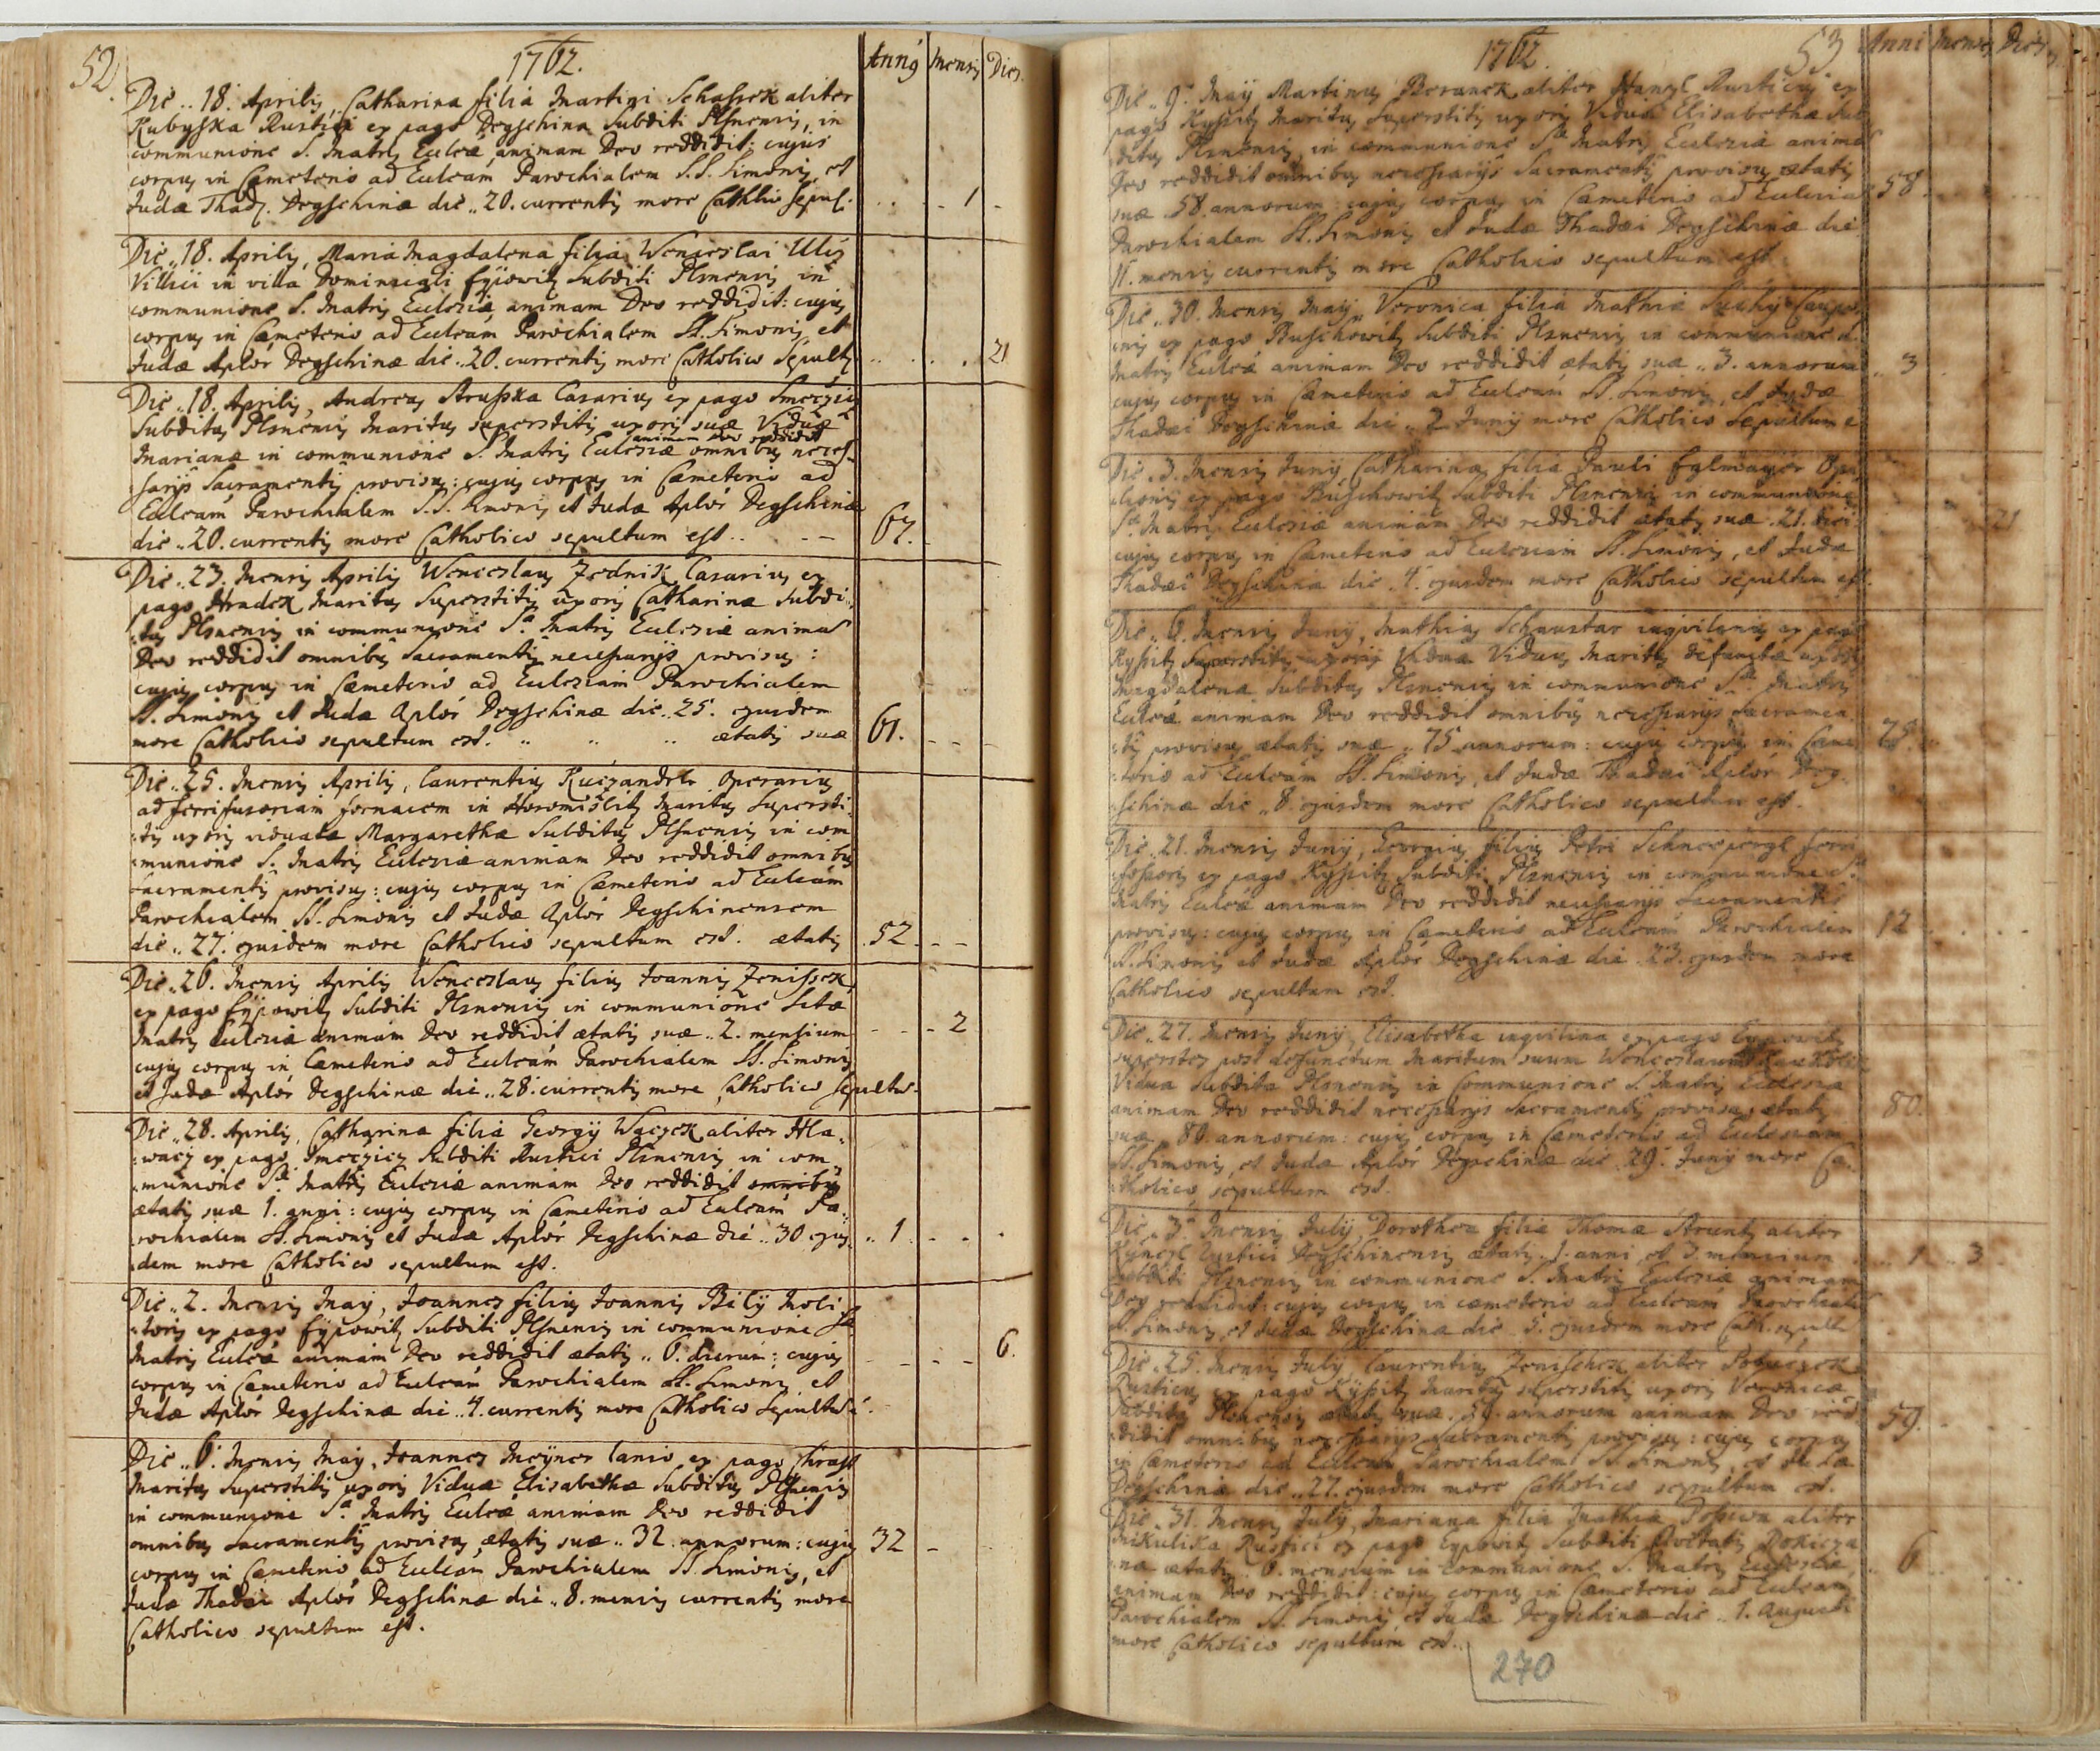 52.
1762.
Anng Mensis Dies
Die .. 18. Aprilis, Catharina filia Martini Schassek aliter
Kubyska Rustici ex pago Degschina Subditi Plsnensis, in
communione S. Matris Eulcae animam Deo reddidit: cujus
corpus in Cameterio ad Eulcam Parochialem S.S. Simonis, et
Judae Thad. Degschinae die .. 20. currentis more Cathlio Sepul. 1
Die .. 18. Aprilis, Maria Magdalena filia Wenceslai Ulis
Villici in villa Dominicali Eÿpowitz Subditi Plsnensis in
communione S. Matris Eulesiae animam Deo reddidit: cujus
corpus in Cameterio ad Eulcam Parochialem SS. Simonis et
Judae Aplor Degschinae die .. 20. currentis more Catholico Sepult 21
Die .. 18. Aprilis, Andreas Struska Casarius ex pago Smeczicz
Subditus Plsnensis Maritus superstitis uxoris suae Viduae
animam Deo reddidit
Marianae in communione S. Matris Eulesiae omnibus neces-
sarys Sacramentis provisus: cujus corpus in Cameterio ad
Eulcam Parochialem S.S. Simonis et Judae Aplor Degschinae
die .. 20. currentis more Catholico sepultum est .. 67.
Die .. 23. Mensis Aprilis Wenceslaus Zednik Casarius ex
pago Hradek Maritus Superstitis uxoris Catharinae Subdi-
tus Plsnensis in communione Sae Matris Eulesiae animam
Deo reddidit omnibus Sacramentis necessarys provisus:
cujus corpus in Cameterio ad Eulesiam Parochialem
SS. Simonis et Judae Aplor Degschinae die .. 25. ejusdem
more Catholico sepultum est. .. .. .. aetatis suae 61.
Die .. 25. Mensis Aprilis, Laurentius Operarius
ad ferrifusoriam fornacem in Horomislitz Maritus Supersti-
tis uxoris viduatae Margarethae Subditus Plsnensis in com
munione S. Matris Eulesiae animam Deo reddidit omnibus
Sacramentis provisus: cujus corpus in Cameterio ad Eulcam
Parochialem SS. Simonis et Judae Aplor Degschinensem
die .. 27. ejusdem more Catholico sepultum est. aetatis 52
Die .. 26. Mensis Aprilis Wenceslaus filius Joannis Zenissek
ex pago Eÿpowitz Subditi Plsnensis in communione Sctae
Matris Eulesiae animam Deo reddidit aetatis suae .. 2. mensium 2
cujus corpus in Cameterio ad Eulcam Parochialem SS. Simonis
et Judae Aplor Degschinae die .. 28. currentis more Catholico Sepultus.
Die .. 28. Aprilis, Catharina filia Georgÿ Waczek aliter Hla-
waczex pago Smeczicz Subditi Rustici Plsnensis in com
munione Sae Matris Eulesiae animam Deo reddidit omnibus
aetatis suae 1. anni: cujus corpus in Cameterio ad Eulcam Pa-
rochialem SS. Simonis et Judae Aplor Degschinae die .. 30 ejus- 1
dem more Catholico sepultum est.
Die .. 2. Mensis Maÿ, Joannes filius Joannis Bilÿ Moli-
toris ex pago Eÿpowitz Subditi Plsnensis in communione Sae
Matris Eulcae animam Deo reddidit aetatis .. 6. dierum: cujus 6.
corpus in Cameterio ad Eulcam Parochialem SS. Simonis, et
Judae Aplor Degschinae die .. 4. currentis more Catholico Sepultus e.
Die .. 6. Mensis Maÿ, Joannes Meÿner lanio ex pago Chrast
Maritus Superstitis uxoris Viduae Elisabethae Subditus Plsnensis
in communione Sae Matris Eulcae animam Deo reddidit
omnibus Sacramentis provisus, aetatis suae .. 32. annorum: cujus 32
corpus in Cameterio ad Eulcam Parochialem SS. Simonis, et
Judae Thadaei Aplor Degschinae die .. 8. mensis currentis more
Catholico sepultum est.
1762.
53
Anni Mensis Dies
Die .. 9. Maÿ Martinus Beranek aliter Hansl Rusticus ex
pago Kyssitz Maritus Superstitis uxoris Viduae Elisabethae Sub
ditus Plsnensis in communione Sae Matris Eulesiae animam
Deo reddidit omnibus necessarys Sacramentis provisus aetatis
suae .. 58. annorum: cujus corpus in Cameterio ad Eulesiam 58
Parochialem SS. Simonis et Judae Thadaei Degschinae die
11. mensis currentis more Catholico sepultum est.
Die .. 30. Mensis Maÿ, Veronica filia Mathiae Suchÿ Caupo-
nis ex pago Buschowitz Subditi Plsnensis in communione S.
Matris Eulcae animam Deo reddidit aetatis suae .. 3. annorum 3
cujus corpus in Cameterio ad Eulcam SS. Simonis, et Judae
Thadaei Degschinae die .. 2 Junÿ more Catholico Sepultum e
Die .. 3. Mensis Junÿ Catharina filia Pauli
ex pago Buschowitz Subditi Plsnensis in communione
Sae Matris Eulesiae animam Deo reddidit aetatis suae .. 21. 21
cujus corpus in Cameterio ad Eulesiam SS. Simonis, et Judae
Thadaei Degschina die .. 4. ejusdem more Catholico sepultum est.
Die .. 6. Mensis Junÿ, Mathias Schnustar inqvilinus ex pago
Kyssitz Superstitis uxoris Viduae Viduus Maritus defunctae uxoris
Magdalenae Subditus Plsnensis in communione Sae Matris
Eulcae animam Deo reddidit omnibus necessarys Sacramen-
tis provisus aetatis suae .. 75 annorum: cujus corpus in Came- 75
terio ad Eulcam SS. Simonis, et Judae Thadaei Aplor Deg-
schinae die .. 8. ejusdem more Catholico sepultus est.
Die .. 21. Mensis Junÿ, Georgius filius Petri Schneepergl ferri
fossoris ex pago Kyssitz Subditi Plsnensis in communione Sae
Matris Eulcae animam Deo reddidit necessarys Sacramentis
provisus: cujus corpus in Cameterio ad Eulcam Parochialem 12
SS. Simonis et Judae Aplor Degschinae die .. 23. ejusdem more
Catholico sepultum est.
Die .. 27. Mensis Junÿ, Elisabetha inqvilina ex pago Eypowitz
superstes post defunctum Maritum suum Wenceslaum
Vidua Subdita Plsnensis in Communione S. Matris Eulesiae
animam Deo reddidit necessarys Sacramentis provisa, aetatis 80.
suae .. 80. annorum: cujus corpus in Cameterio ad Eulesiam
SS. Simonis, et Judae Aplor Degschinae die .. 29. Junÿ more Ca-
tholico sepultum est.
Die .. 3. Mensis Julÿ, Dorothea filia Thomae Struntz aliter
Rustici Degschinensis aetatis .. 1. anni et 3. mensium 1 3
Subditi Plsnensis in communione S. Matris Eulesiae animam
Deo reddidit: cujus corpus in cameterio ad Eulcam Parochialem
SS. Simonis, et Judae Degschinae die .. 5. ejusdem more Cath. sepult
Die .. 25. Mensis Julÿ, Laurentius Zenischek aliter
Rusticus ex pago Kÿssitz Maritus superstitis uxoris Veronicae
Subditus Plsnensis aetatis suae .. 59. annorum animam Deo red 59.
didit omnibus necessarys Sacramentis provisus: cujus corpus
in Cameterio ad Eulcam Parochialem SS. Simonis, et Judae
Degschinae die .. 27. ejusdem more Catholico sepultum est.
Die .. 31. Mensis Julÿ, Mariana filia Mathiae aliter
Mikuliska Rustici ex pago Eypowitz Subditi
aetatis .. 6. mensium in Communione S. Matris Eulesiae, 6
animam Deo reddidit: cujus corpus in Cameterio ad Eulcam
Parochialem SS. Simonis, et Judae Degschinae die .. 1. Augusti
more Catholico sepultum est.
270